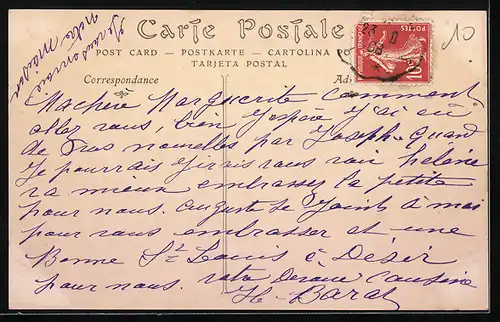 Carte Postale
POST CARD — POSTKARTE — CARTOLINA PO
TARJETA POSTAL
Correspondance
Ad
POSTES
10
23
08
10
notre maison
Ma chère Marguerite comment
allez vous, bien j'espère j'ai eu
de vos nouvelles par Joseph. quand
je pourrais j'irais vous voir helene
va mieux embrasser la petite
pour nous. auguste se joint à moi
pour vous embrasser et une
Bonne St Louis à Désir
pour nous. votre cousine
H. Barat